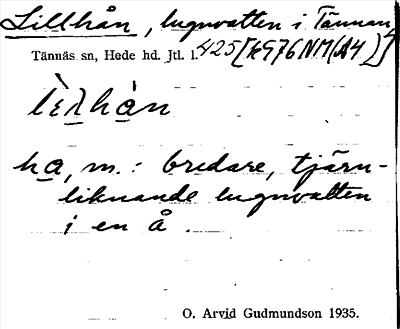 Lillhån, lugnvatten i Tännan
Tännäs sn, Hede hd. Jtl. l. 425 [k976NM(A4)]
hạ, m. : bredare, tjärn-
liknande lugnvatten
i en å.
O. Arvid Gudmundson 1935.